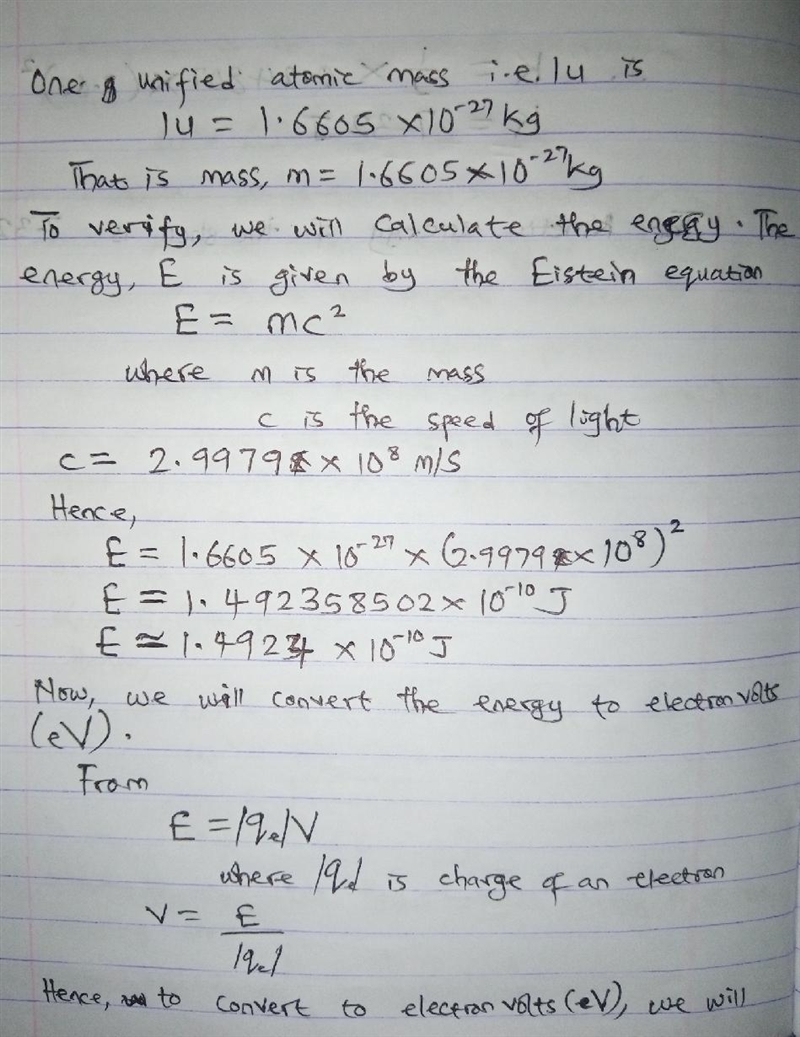 One unified atomic mass i.e. 1u is
1u = 1.6605 × 10⁻²⁷ kg
That is mass, m = 1.6605 × 10⁻²⁷ kg
To verify, we will calculate the energy. The
energy, E is given by the Eistein equation
E = mc²
where m is the mass
c is the speed of light
c = 2.9979 × 10⁸ m/s
Hence,
E = 1.6605 × 10⁻²⁷ × (2.9979 × 10⁸)²
E = 1.492358502 × 10⁻¹⁰ J
E ≃ 1.4924 × 10⁻¹⁰ J
Now, we will convert the energy to electron volts
(eV).
From
E = |qₑ|V
where |qₑ| is charge of an electron
V = E
|qₑ|
Hence, to convert to electron volts (eV), we will